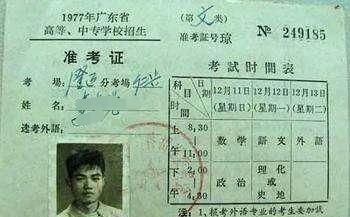 1977年广东省
高等、中专学校招生
(第文类)
准考证号琼 № 249185
准考证
考場 分考場
姓名
选考外语:
考試时間表
科目 时间 12月11日(星期日) 12月12日(星期一) 12月13日(星期二)
上午 8,30 11,00 数学 語文 外語
下午 2,00 4,30 政治 理化或史地
注:1、报考外语专业的考生要加试